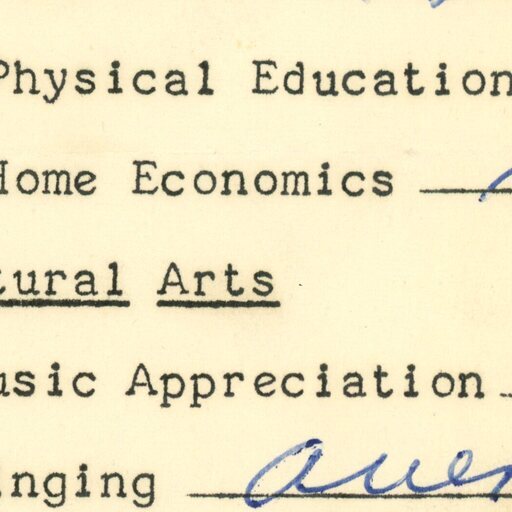 Physical Education
Home Economics
tural Arts
usic Appreciation
inging aver